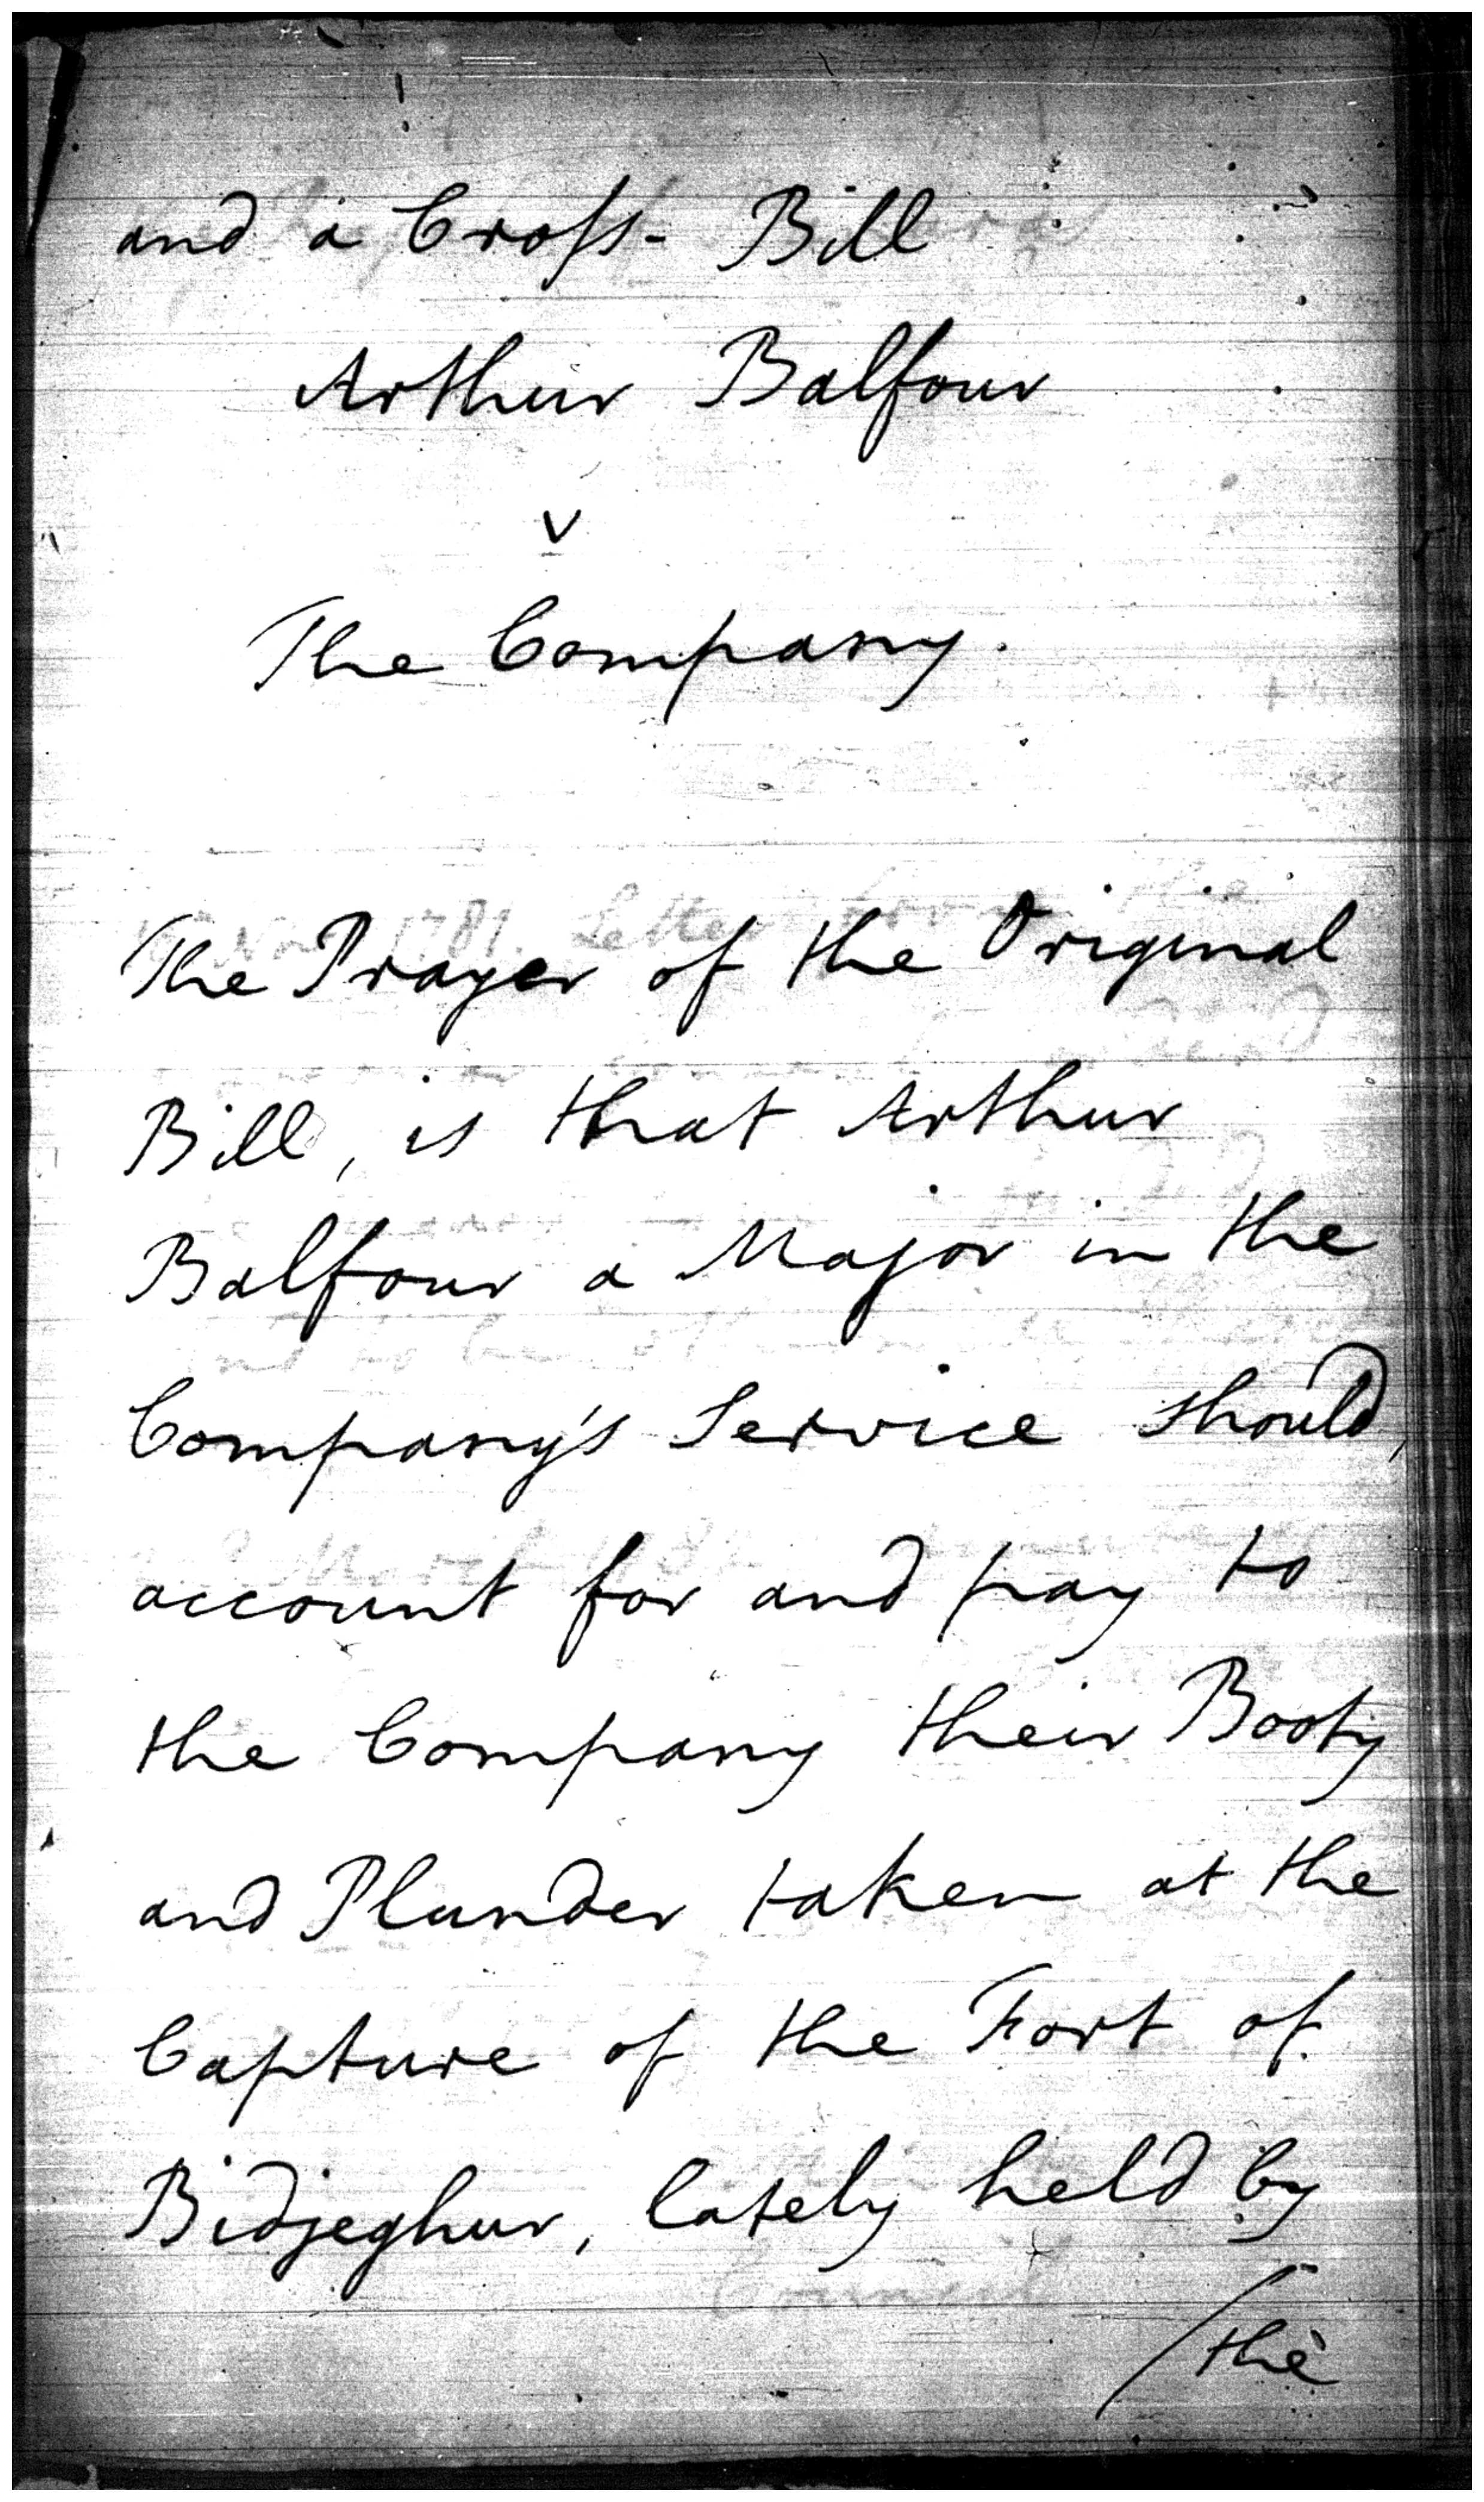 and a Cross- Bill
Arthur Balfour
v
The Company.
The Prayer of the Original
Bill, is that Arthur
Balfour a Major in the
Company's Service should,
account for and pay to
the Company their Booty
and Plunder taken at the
Capture of the Fort of
Bidjeghur, lately held by
/the